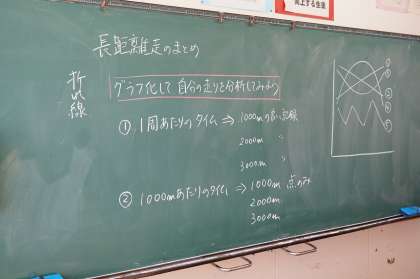 向上する生徒
長距離走のまとめ
折れ線
グラフ化して自分の走りを分析してみよう
① 1周あたりのタイム ⇒ 1000mの高い記録
2000m 〃
3000m 〃
② 1000mあたりのタイム ⇒ 1000m 点のみ
2000m
3000m